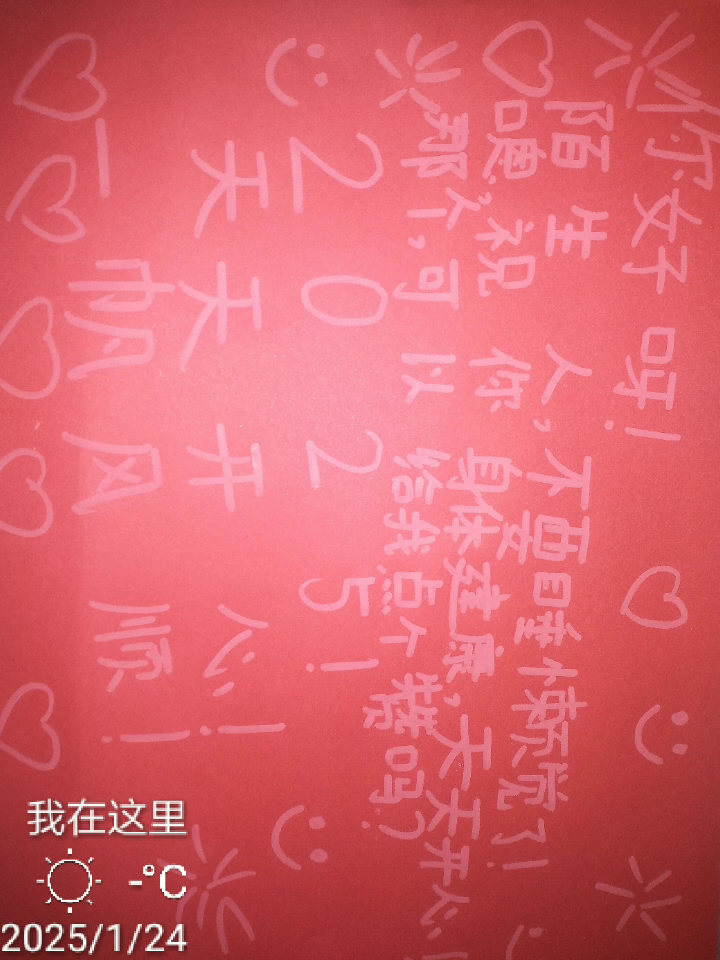 你好呀!
陌生人,不要睡懒觉了!
嗯,祝你身体建康,天天开心!
那个,可以给我点个赞吗?
2025!
天天开心!
一帆风顺!
我在这里
-°C
2025/1/24